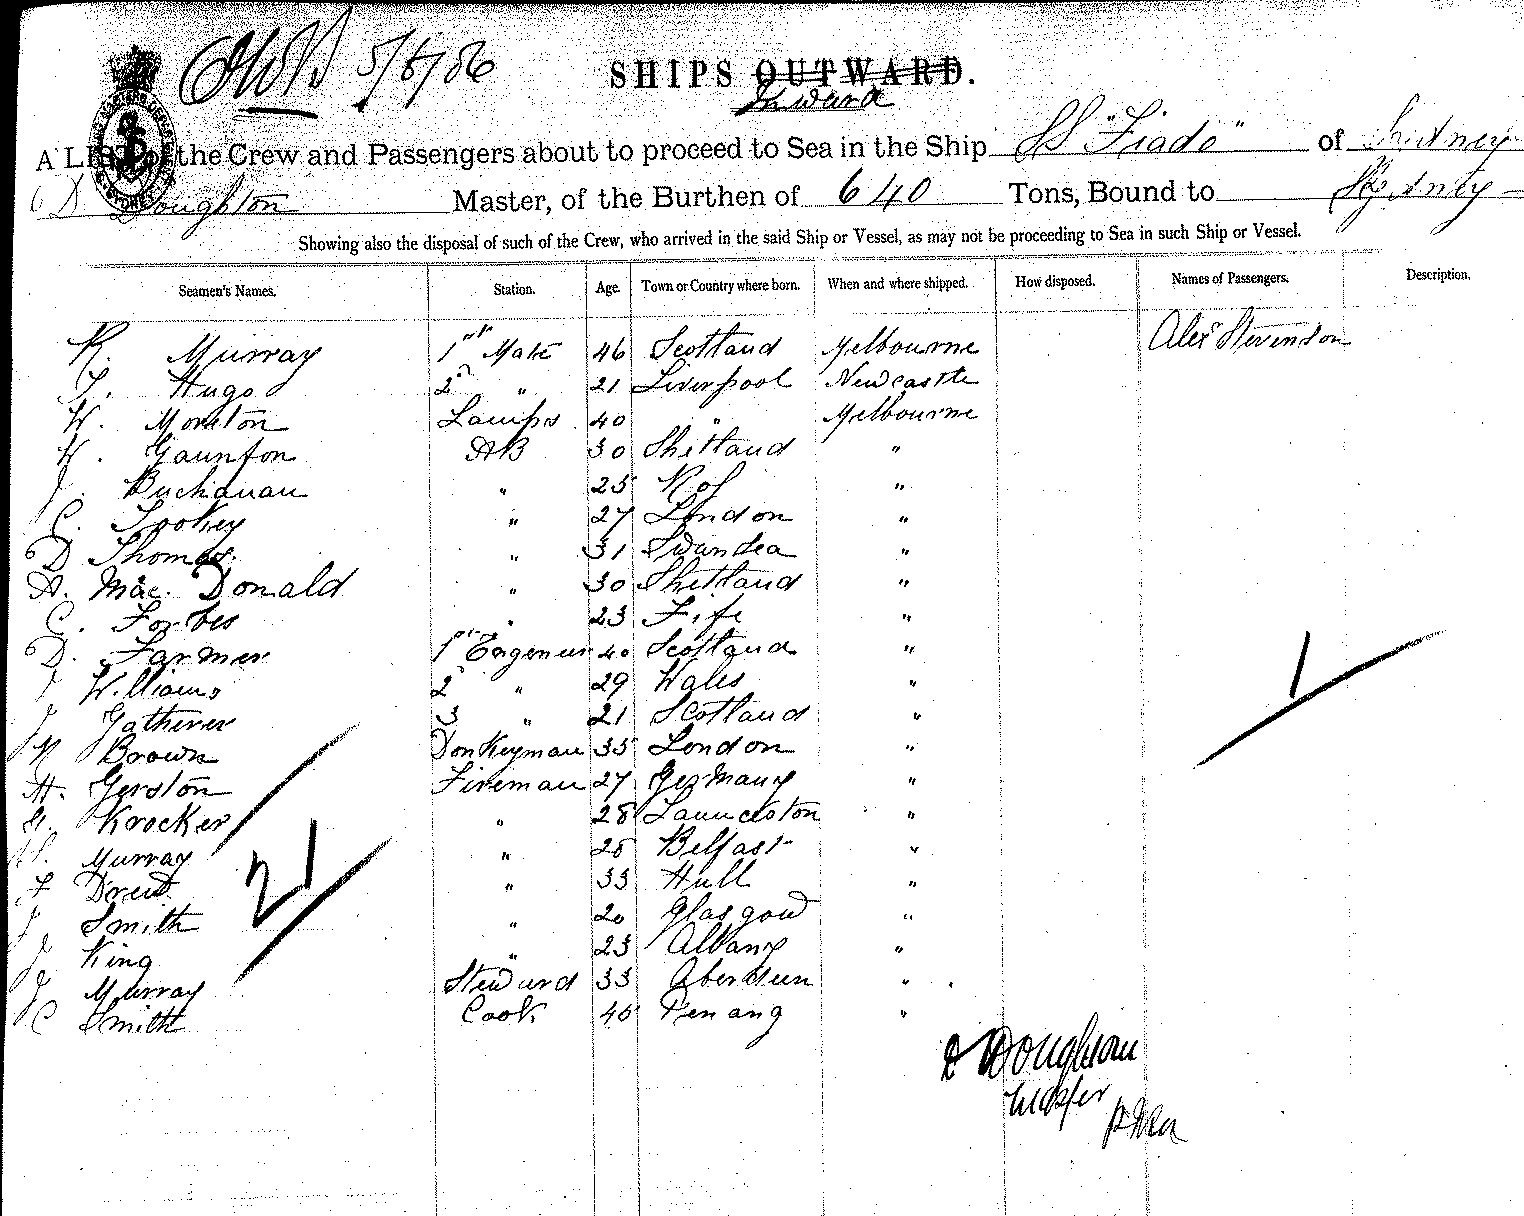 5/8/86
SHIPS OUTWARD.
Inward
A LIST of the Crew and Passengers about to proceed to Sea in the Ship SS "Fiado" of Sydney
D Doughton Master, of the Burthen of 640 Tons, Bound to Sydney
Showing also the disposal of such of the Crew, who arrived in the said Ship or Vessel, as may not be proceeding to Sea in such Ship or Vessel.
Seamen's Names. Station. Age. Town or Country where born. When and where shipped. How disposed. Names of Passengers. Description.
R. Murray 1st Mate 46 Scotland Melbourne Alexr Stevenson
T. Hugo 2d " 21 Liverpool Newcastle
W. Morton Lamps 40 " Melbourne
W. Gaunson AB 30 Shetland "
J. Buchanan " 25 "
C. Tookey " 27 London "
D Thomas. " 31 Swansea "
A. Mac. Donald " 30 Shetland "
C. Forbes " 23 Fife "
D. Farmer 1st Engineer 40 Scotland "
Williams 2d " 29 Wales "
J Gatherer 3 " 21 Scotland "
N Brown Donkeyman 35 London "
H. Gerston Fireman 27 Germany "
G. Krocker " 28 Launceston "
Murray " 28 Belfast "
F Drew " 33 Hull "
J Smith " 20 Glasgow "
J King " 23 Albany "
J Murray Steward 33 Aberdeen "
C Smith Cook 45 Penang "
21
1
D Doughton
Master